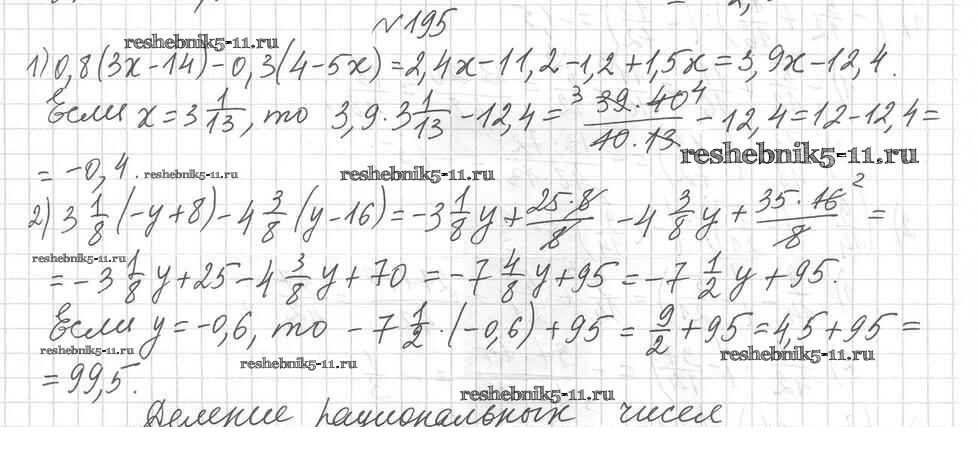 №195
reshebnik5-11.ru
1) 0,8(3x-14)-0,3(4-5x)=2,4x-11,2-1,2+1,5x=3,9x-12,4.
Если x=3 1/13, то 3,9·3 1/13 -12,4= ³ 39·40⁴/10·13 -12,4=12-12,4=
reshebnik5-11.ru
= -0,4. reshebnik5-11.ru reshebnik5-11.ru
2) 3 1/8 (-y+8)-4 3/8 (y-16)=-3 1/8 y+ 25·8/8 -4 3/8 y+ 35·16²/8 =
reshebnik5-11.ru
= -3 1/8 y+25-4 3/8 y+70 = -7 4/8 y+95=-7 1/2 y+95.
Если y=-0,6, то -7 1/2 ·(-0,6)+95= 9/2 +95=4,5+95=
reshebnik5-11.ru reshebnik5-11.ru reshebnik5-11.ru
=99,5.
reshebnik5-11.ru
Деление рациональных чисел